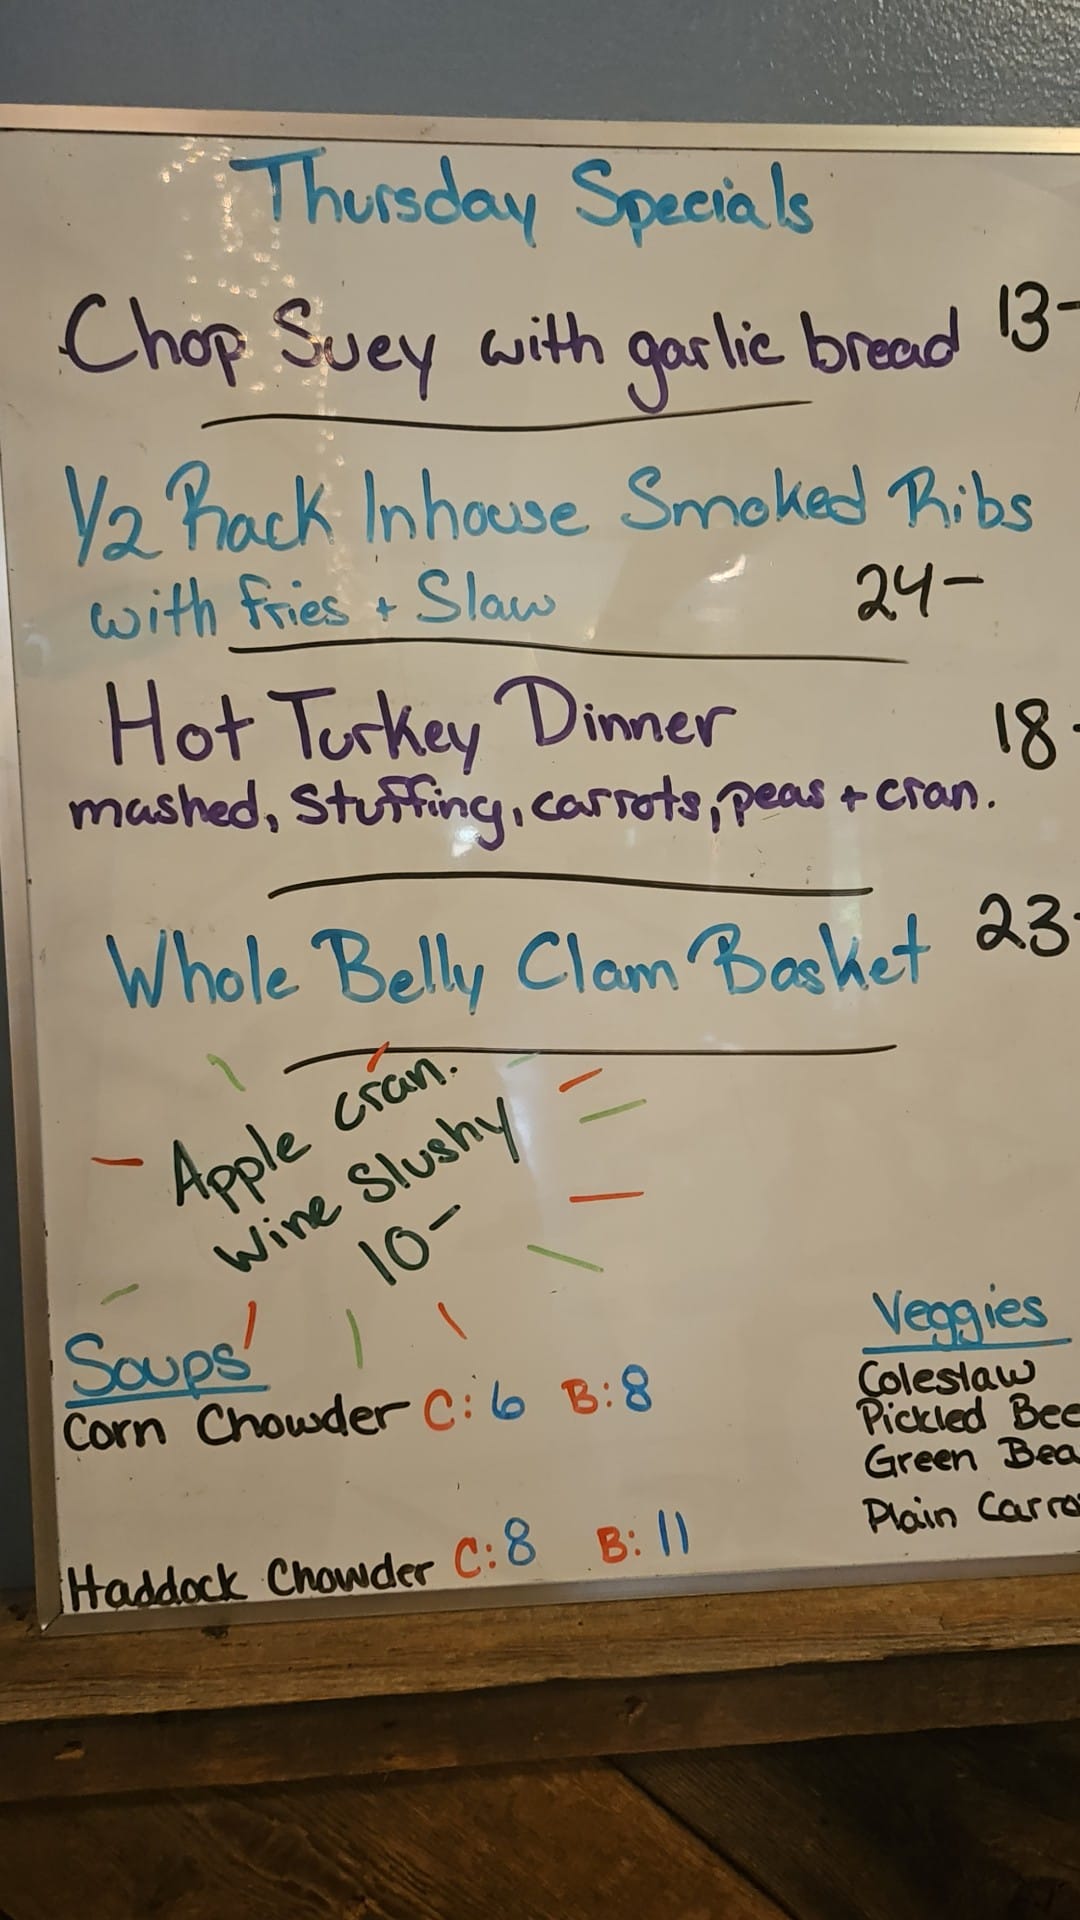 Thursday Specials
Chop Suey with garlic bread 13-
1/2 Rack Inhouse Smoked Ribs
with fries + Slaw 24-
Hot Turkey Dinner 18-
mashed, Stuffing, carrots, peas + cran.
Whole Belly Clam Basket 23-
Apple cran.
Wine Slushy
10-
Soups
Corn Chowder C: 6 B: 8
Haddock Chowder C: 8 B: 11
Veggies
Coleslaw
Pickled Bee
Green Bea
Plain Carro